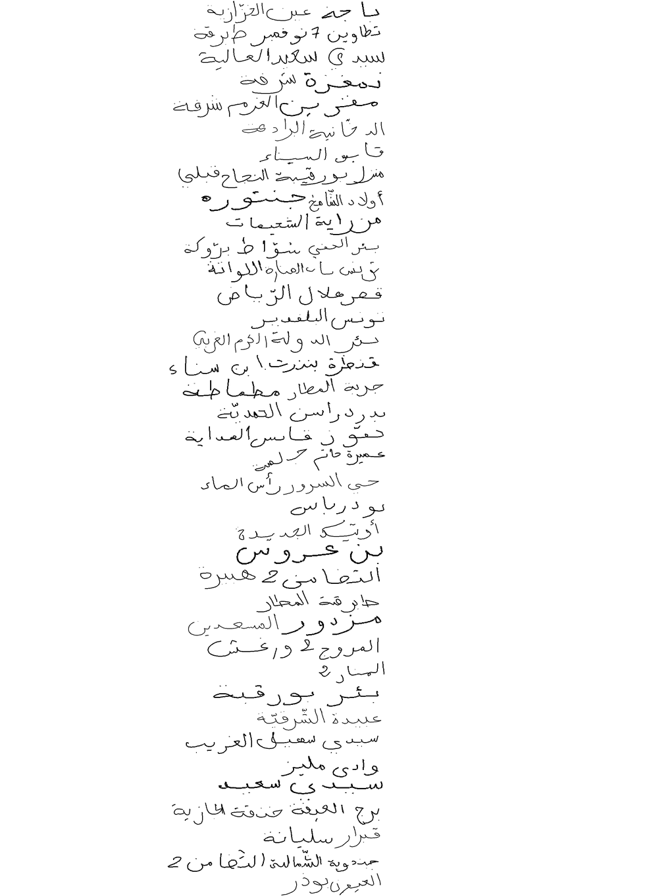 باجة عين الغرازية
تطاوين 7 نوفمبر طبرقة
سيدي سعيد العالية
نمغزة شرفة
بن العزم شرفة
الدخانية الرادعة
السيناء
منزل بورقيبة النجاح قبلي
أولاد الشامخ جنتوره
مزراية الشعيمات
بئر الحفي شواط بروكة
اللوانة
قصر هلال الرياض
تونس البلفدير
بئر الدولة الكرم الغربي
قنطرة بنزرت ابن سناء
جربة المطار مطماطة
بدر دراسن الحمدية
فايس الهداية
عميرة حاتم
حي السرور رأس الماء
بودرباس
أوتيك الجديدة
بن عروس
التضامن 2 هبيرة
طبرقة المطار
مزدور المسعدين
المروج 2 ورغش
المنار 2
بئر بورقبة
عبيدة الشرفية
سيدي سهيل الغريب
وادي مليز
سيدي سعيد
برج العيفة خنقة الجازية
قرار سليانة
جندوبة الشمالية التضامن 2
بوذر